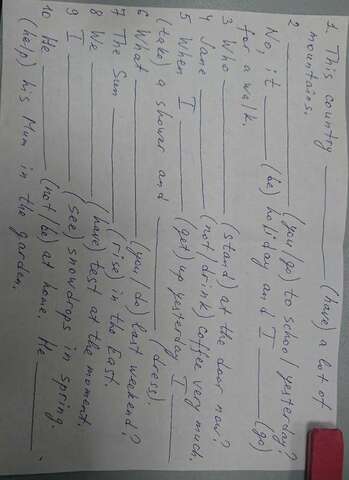 1. This country ________ (have) a lot of
mountains.
2 ________ (you/go) to school yesterday?
No, it ____ (be) holiday and I ____ (go)
for a walk.
3 Who ________ (stand) at the door now?
4 Jane ________ (not/drink) coffee very much.
5 When I ____ (get) up yesterday I ____
(take) a shower and ____ (dress).
6 What ________ (you/do) last weekend?
7 The Sun ________ (rise) in the East.
8 We ________ (have) test at the moment.
9 I ________ (see) snowdrops in spring.
10 He ________ (not/be) at home. He ________
(help) his Mum in the garden.